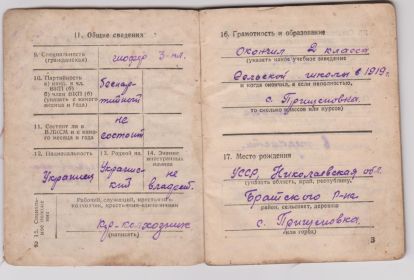 II. Общие сведения
9. Специальность
(гражданская)
шофер 3-кл.
10. Партийность
а) канд. и чл.
ВКП (б)
б) член ВКП (б)
(указать с какого
месяца и года)
беспар-
тийный
11. Состоит ли в
ВЛКСМ и с како-
го месяца и года
не
состоит
12. Национальность
Украинец
13. Родной яз.
Украинс-
кий
14. Знание
иностранных
языков
не
владеет.
15. Социаль-
ное положе-
ние
Рабочий, служащий, крестьянин-
колхозник, крестьянин-единоличник
Кр-колхозник
(написать)
16. Грамотность и образование
Окончил 2 класса
(указать какое учебное заведение
Сельской школы в 1919 г.
и когда окончил, а если неполностью,
с. Прищеповка.
то сколько классов или курсов)
17. Место рождения
УССР, Николаевская обл.
(указать область, край, республику,
Братского р-на
район, сельсовет, деревня
с. Прищеповка.
(или город)
3